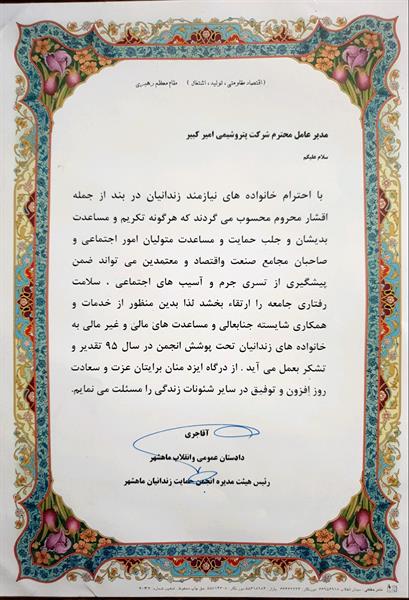 (اقتصاد مقاومتی ، تولید ، اشتغال) مقام معظم رهبری
مدیر عامل محترم شرکت پتروشیمی امیر کبیر
سلام علیکم
با احترام خانواده های نیازمند زندانیان در بند از جمله
اقشار محروم محسوب می گردند که هرگونه تکریم و مساعدت
بدیشان و جلب حمایت و مساعدت متولیان امور اجتماعی و
صاحبان مجامع صنعت واقتصاد و معتمدین می تواند ضمن
پیشگیری از تسری جرم و آسیب های اجتماعی ، سلامت
رفتاری جامعه را ارتقاء بخشد لذا بدین منظور از خدمات و
همکاری شایسته جنابعالی و مساعدت های مالی و غیر مالی به
خانواده های زندانیان تحت پوشش انجمن در سال ۹۵ تقدیر و
تشکر بعمل می آید . از درگاه ایزد منان برایتان عزت و سعادت
روز افزون و توفیق در سایر شئونات زندگی را مسئلت می نمایم.
آقاجری
دادستان عمومی وانقلاب ماهشهر
رئیس هیئت مدیره انجمن حمایت زندانیان ماهشهر